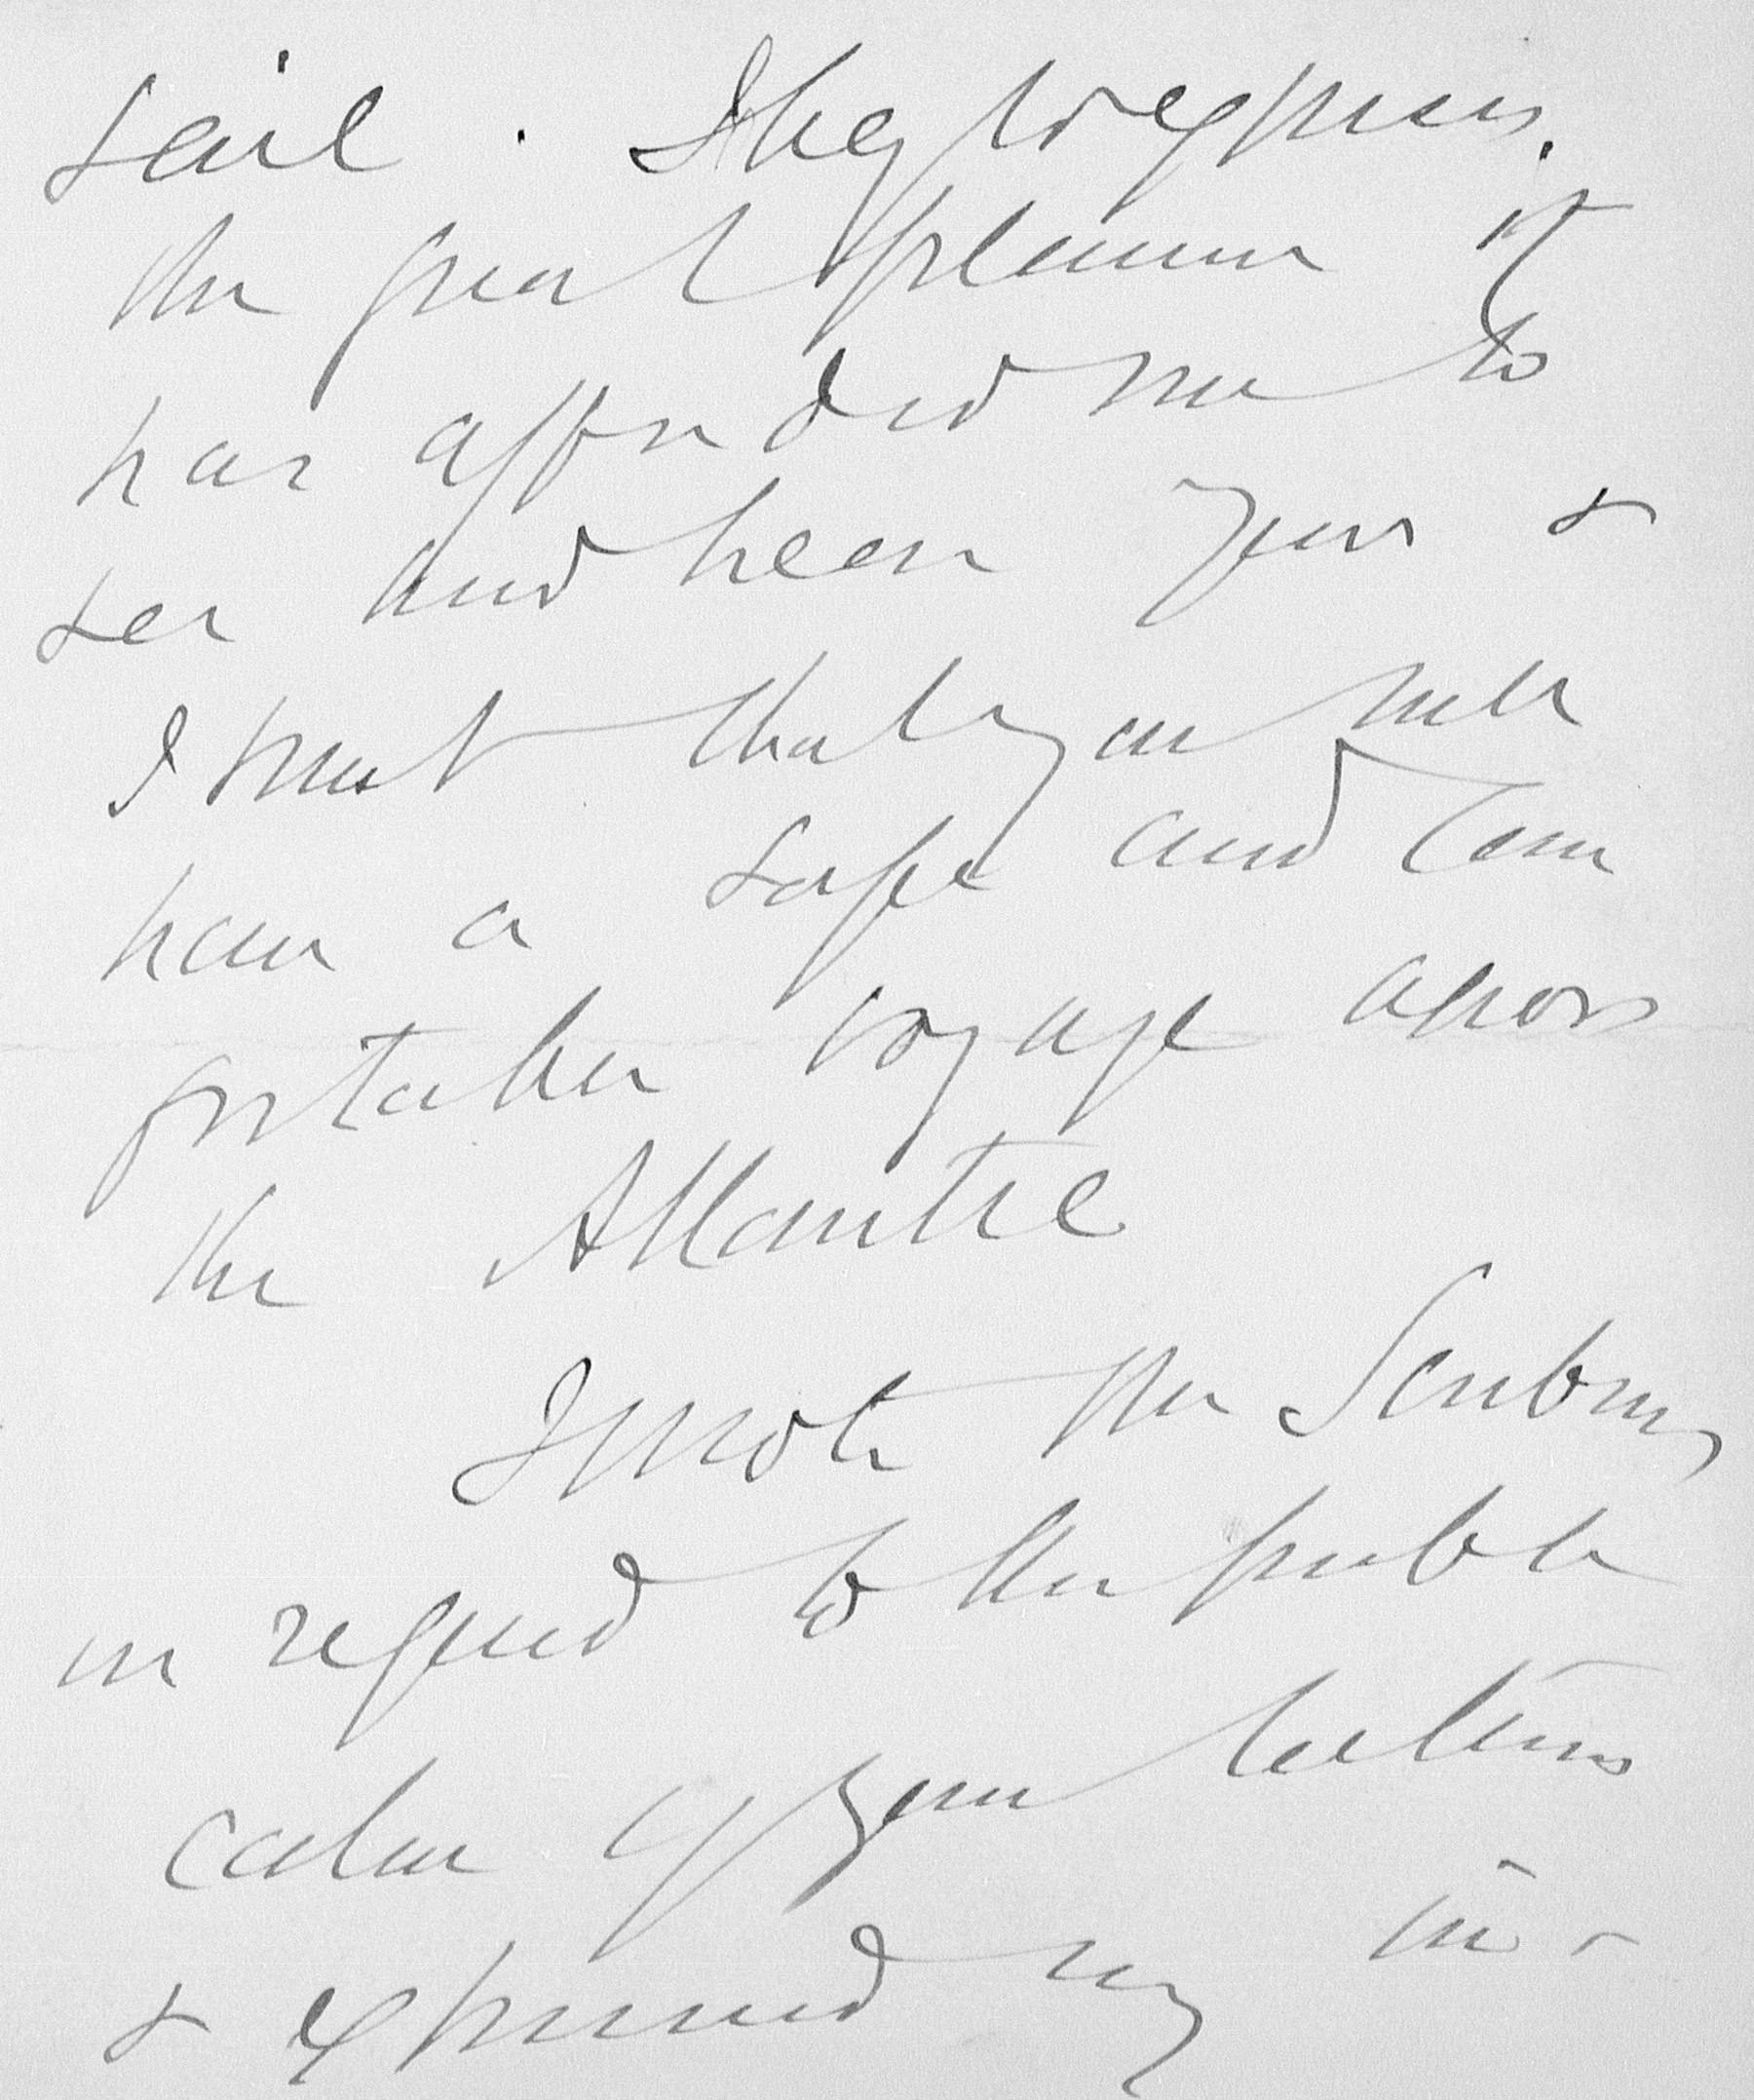 sail. I beg to express
the great pleasure it
has afforded me to
see and hear you &
I trust that you will
have a safe and com
fortable voyage across
the Atlantic
I wrote the Scribners
in regard to the publi
cation of your lectures
& expressed my in-